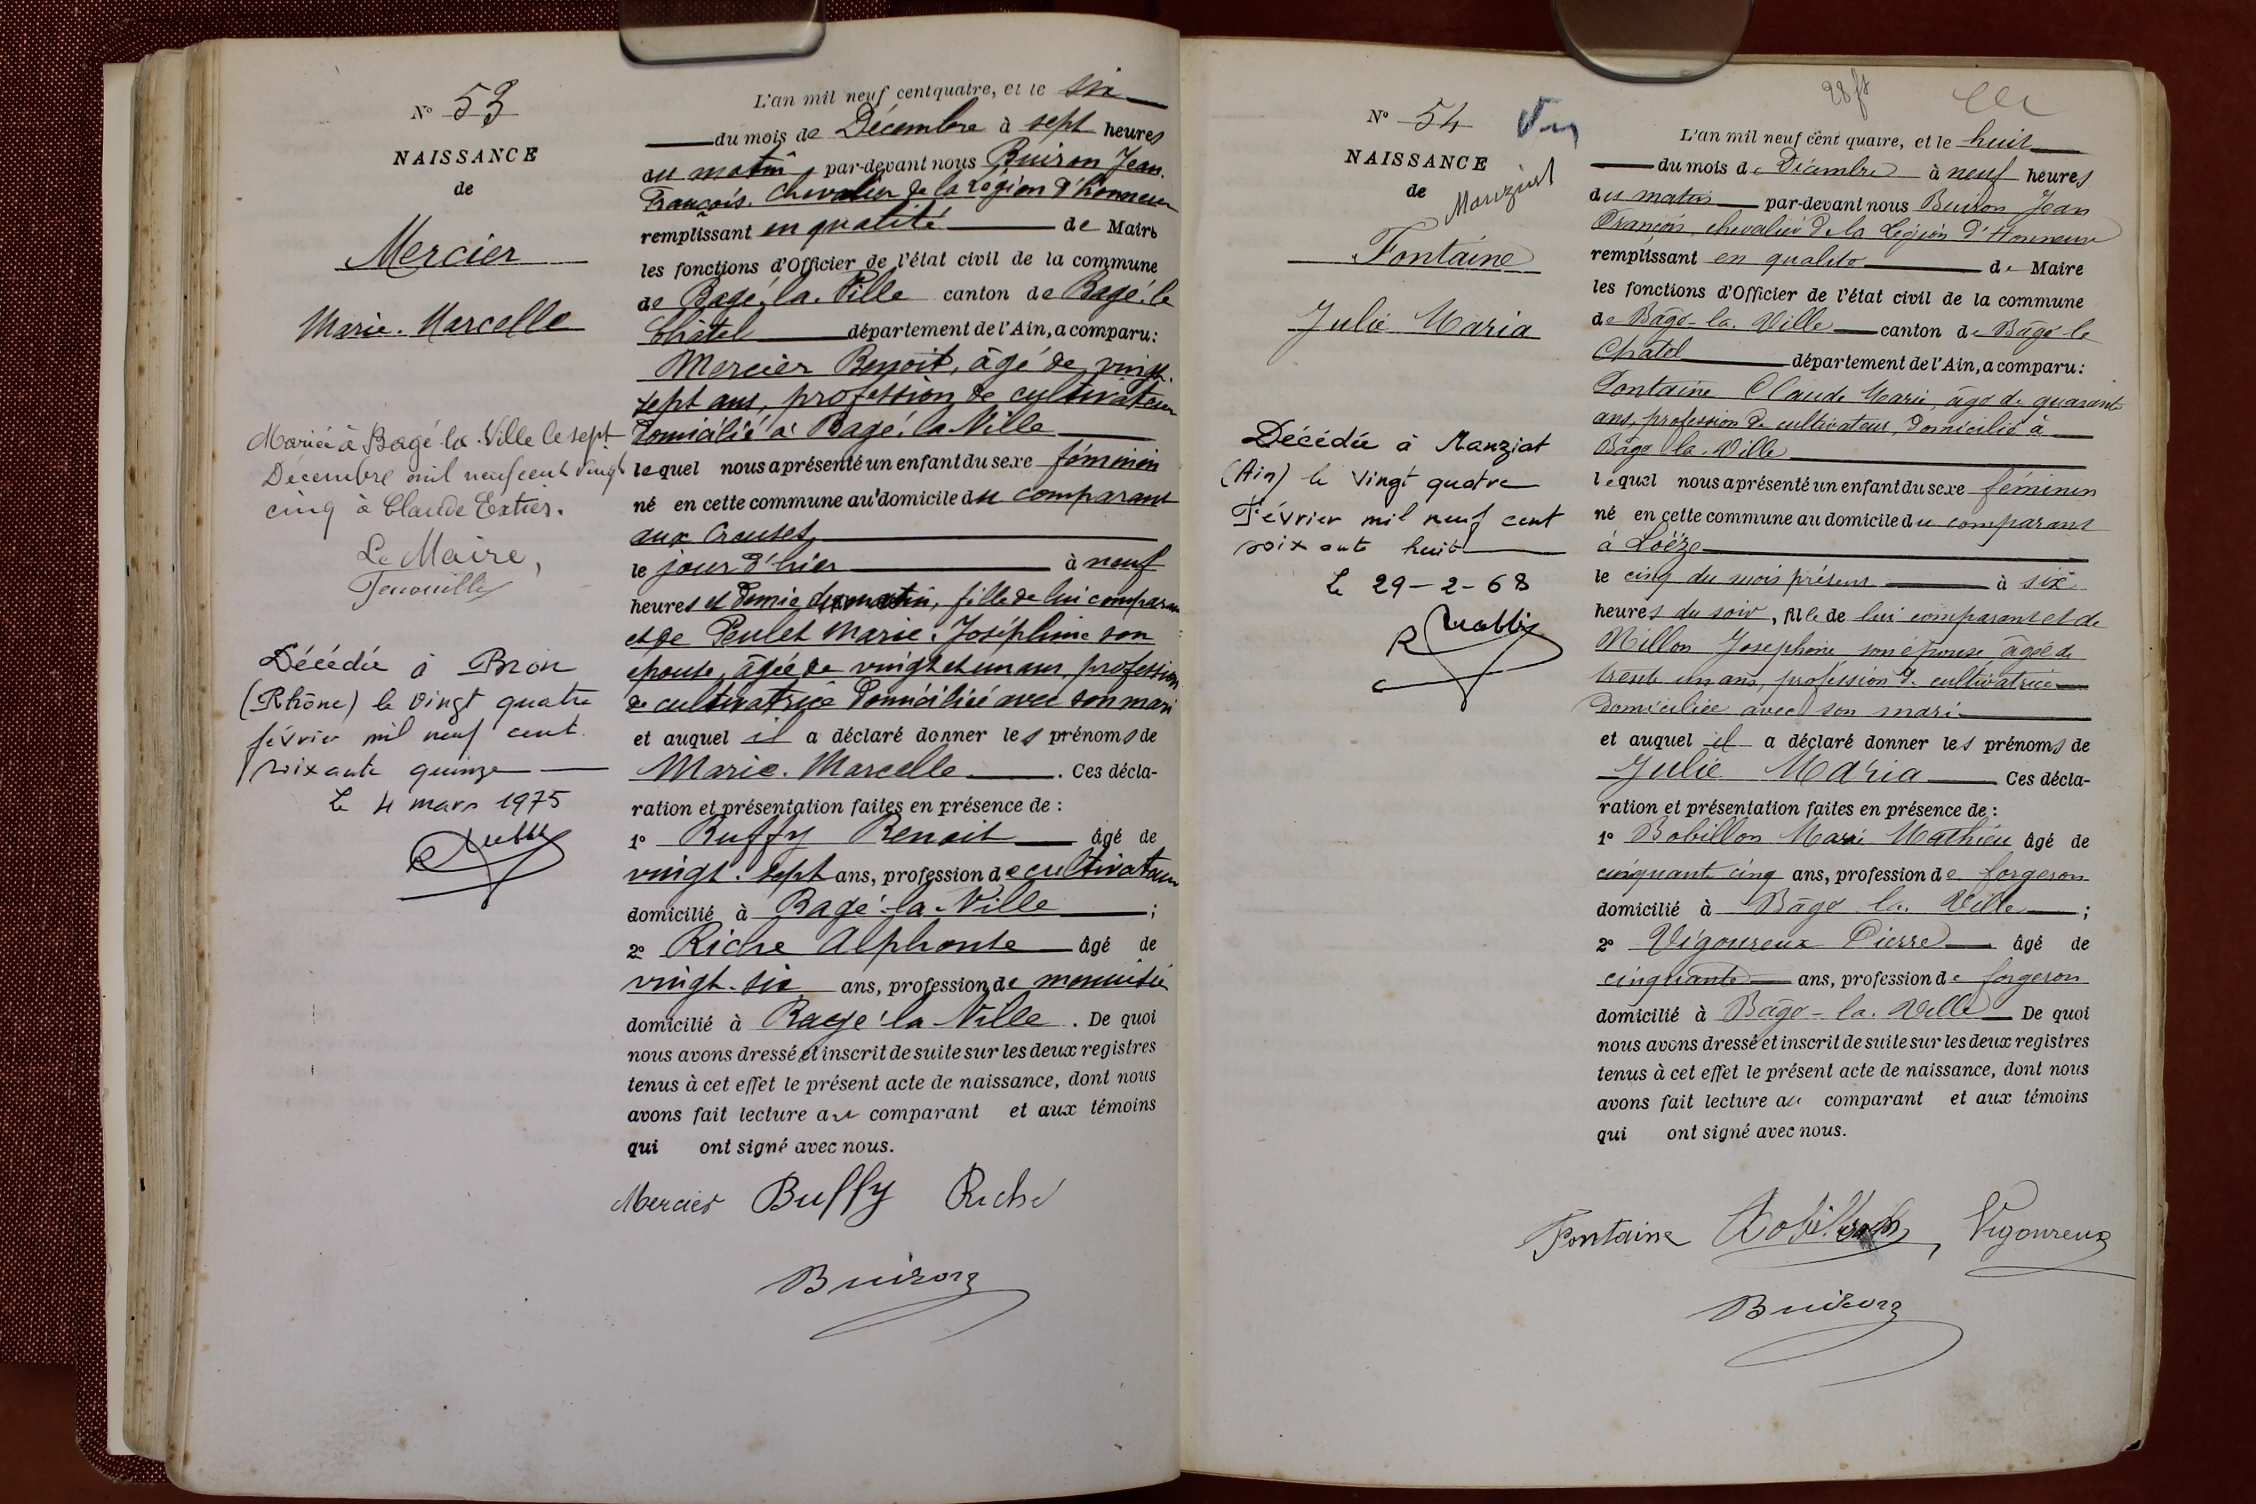 N° 53
NAISSANCE
de
Mercier
Marie-Marcelle
Mariée à Bagé-la-Ville le sept
Décembre mil neuf cent vingt
cinq à Claude Extier.
Le Maire,
Décédée à Bron
(Rhône) le vingt quatre
février mil neuf cent
soixante quinze
Le 4 mars 1975
L'an mil neuf cent quatre, et le six
du mois de Décembre à sept heures
du matin, par-devant nous Buiron Jean
François, Chevalier de la Légion d'honneur
remplissant en qualité de Maire
les fonctions d'Officier de l'état civil de la commune
de Bagé-la-Ville canton de Bagé-le
Châtel département de l'Ain, a comparu:
Mercier Benoit, âgé de vingt-
sept ans, profession de cultivateur
domicilié à Bagé-la-Ville
lequel nous a présenté un enfant du sexe féminin
né en cette commune au domicile du comparant
aux Creuses,
le jour d'hier à neuf
heures et demie du matin, fille de lui comparant
et de Penlet Marie-Joséphine son
épouse, âgée de vingt et un ans, profession
de cultivatrice domiciliée avec son mari
et auquel il a déclaré donner les prénoms de
Marie-Marcelle. Ces décla-
ration et présentation faites en présence de :
1° Buffy Benoit âgé de
vingt-sept ans, profession de cultivateur
domicilié à Bagé-la-Ville ;
2° Riche Alphonse âgé de
vingt-six ans, profession de menuisier
domicilié à Bagé-la-Ville. De quoi
nous avons dressé et inscrit de suite sur les deux registres
tenus à cet effet le présent acte de naissance, dont nous
avons fait lecture au comparant et aux témoins
qui ont signé avec nous.
Mercier Buffy Riche
Buiron
N° 54
NAISSANCE
de
Manziat
Fontaine
Julie Maria
Décédée à Manziat
(Ain) le vingt quatre
Février mil neuf cent
soixante huit
Le 29-2-68
28 ft
L'an mil neuf cent quatre, et le huit
du mois de Décembre à neuf heures
du matin par-devant nous Buiron Jean
François, chevalier de la Légion d'Honneur
remplissant en qualité de Maire
les fonctions d'Officier de l'état civil de la commune
de Bâgé-la-Ville canton de Bâgé-le
Chatel département de l'Ain, a comparu:
Fontaine Claude Marie, âgé de quarante
ans, profession de cultivateur, domicilié à
Bâgé la-Ville
lequel nous a présenté un enfant du sexe féminin
né en cette commune au domicile du comparant
à Loëze
le cinq du mois présent à six
heures du soir, fille de lui comparant et de
Millon Josephine son épouse âgée de
trente un ans, profession de cultivatrice
domiciliée avec son mari
et auquel il a déclaré donner les prénoms de
Julie Maria Ces décla-
ration et présentation faites en présence de :
1° Bobillon Marie Mathieu âgé de
cinquante cinq ans, profession de forgeron
domicilié à Bâgé la Ville ;
2° Vigoureux Pierre âgé de
cinquante ans, profession de forgeron
domicilié à Bâgé-la-Ville De quoi
nous avons dressé et inscrit de suite sur les deux registres
tenus à cet effet le présent acte de naissance, dont nous
avons fait lecture au comparant et aux témoins
qui ont signé avec nous.
Fontaine Bobillon Vigoureux
Buiron